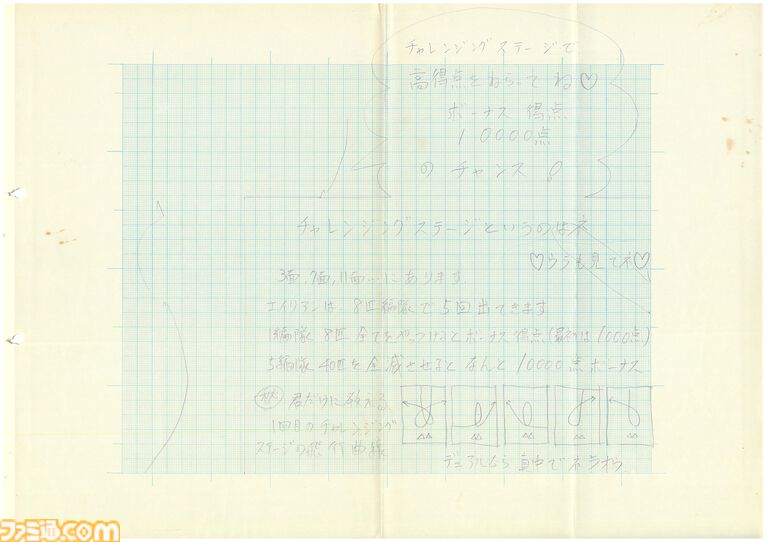 チャレンジングステージで
高得点をねらってね♡
ボーナス得点
10000点
のチャンス!
チャレンジングステージというのはネ
♡ウラも見てネ♡
3面、7面、11面…にあります。
エイリアンは、8匹編隊で5回出てきます
1編隊 8匹 全てをやっつけるとボーナス得点(最初は1000点)
5編隊 40匹を全滅させるとなんと10000点ボーナス
君だけに教える。
1回目のチャレンジング
ステージの飛行曲線
デュアルなら真中でネラオウ
ファミ通.com